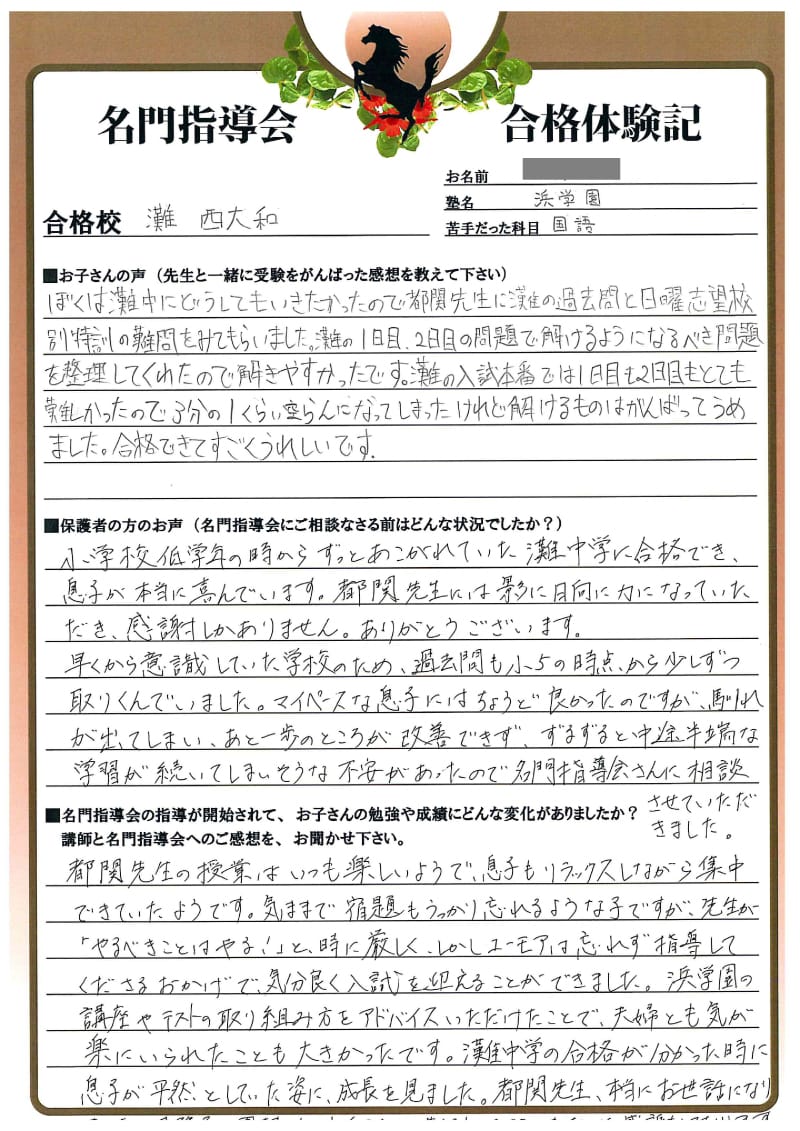 名門指導会 合格体験記
お名前
塾名 浜学園
合格校 灘 西大和
苦手だった科目 国語
■お子さんの声（先生と一緒に受験をがんばった感想を教えて下さい）
ぼくは灘中にどうしてもいきたかったので都関先生に灘の過去問と日曜志望校
別特訓の難問をみてもらいました。灘の1日目、2日目の問題で解けるようになるべき問題
を整理してくれたので解きやすかったです。灘の入試本番では1日目も2日目もとても
難しかったので3分の1くらい空らんになってしまったけれど解けるものはがんばってうめ
ました。合格できてすごくうれしいです.
■保護者の方のお声（名門指導会にご相談なさる前はどんな状況でしたか？）
小学校低学年の時からずっとあこがれていた灘中学に合格でき、
息子が本当に喜んでいます。都関先生には影に日向に力になっていた
だき、感謝しかありません。ありがとうございます。
早くから意識していた学校のため、過去問も小5の時点から少しずつ
取りくんでいました。マイペースな息子にはちょうど良かったのですが、馴れ
が出てしまい、あと一歩のところが改善できず、ずるずると中途半端な
学習が続いてしまいそうな不安があったので名門指導会さんに相談
させていただ
きました。
■名門指導会の指導が開始されて、お子さんの勉強や成績にどんな変化がありましたか？
講師と名門指導会へのご感想を、お聞かせ下さい。
都関先生の授業はいつも楽しいようで、息子もリラックスしながら集中
できていたようです。気ままで宿題もうっかり忘れるような子ですが、先生が
「やるべきことはやる！」と、時に厳しく、しかしユーモアは忘れず指導して
くださるおかげで、気分良く入試を迎えることができました。浜学園の
講座やテストの取り組み方をアドバイスいただけたことで、夫婦とも気が
楽にいられたことも大きかったです。灘中学の合格が分かった時に
息子が平然としていた姿に、成長を見ました。都関先生、本当にお世話になり